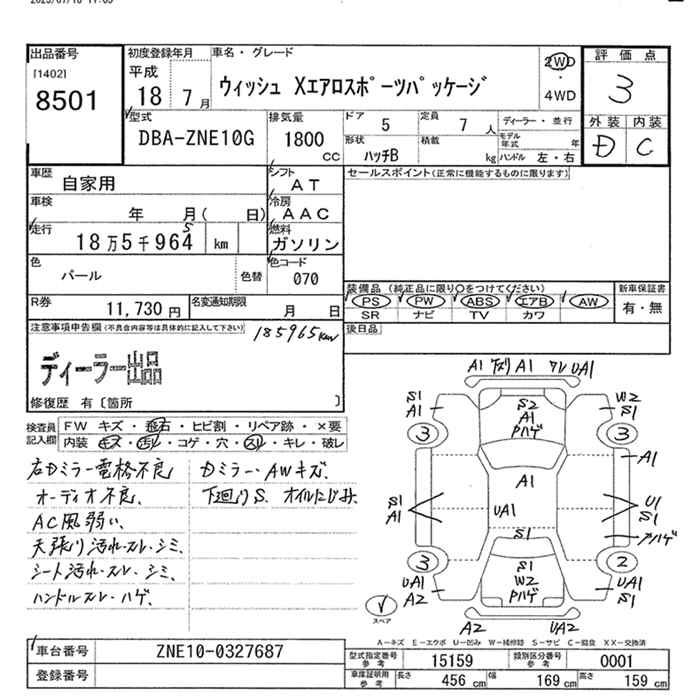 出品番号
[1402]
8501
初度登録年月
平成
18 7月
車名・グレード
ウィッシュ Xエアロスポーツパッケージ
2WD
・
4WD
評価点
3
外装 内装
D C
型式
DBA-ZNE10G
排気量
1800
CC
ドア
5
定員
7 人
形状
ハッチB
積載
kg
ディーラー・並行
モデル年式 年
ハンドル 左・右
車歴
自家用
シフト
AT
車検
年 月( 日)
冷房
AAC
走行
18万5千964 km
5
燃料
ガソリン
色
パール
色替
色コード
070
R券
11,730 円
名変通知期限
月 日
セールスポイント(正常に機能するものに限ります)
装備品 (純正品に限り○をつけてください)
PS PW ABS エアB AW
SR ナビ TV カワ
新車保証書
有・無
後日品
注意事項申告欄(不具合内容等は具体的に記入して下さい)
185965km
ディーラー出品
修復歴 有〔箇所 〕
検査員記入欄
FW キズ・飛石・ヒビ割・リペア跡・×要
内装 キズ・汚れ・コゲ・穴・スレ・キレ・破レ
右ドミラー電格不良
オーディオ不良、
AC風弱い、
天張り汚れ・スレ・シミ、
シート汚れ・スレ・シミ、
ハンドルスレ・ハゲ、
ドミラー・AWキズ、
下廻りS、オイルにじみ、
A1 A1 ワレ UA1
S1
A1
S2
A1
Pハゲ
W2
S1
3
3
A1
A1
S1
A1
UA1
U1
S1
Pハゲ
S1
3
2
UA1
A2
S1
W2
Pハゲ
UA1
S1
スペア
A2 UA2
A-キズ E-エクボ U-凹み W-補修跡 S-サビ C-腐食 XX-交換済
車台番号
ZNE10-0327687
登録番号
型式指定番号
参考
15159
類別区分番号
参考
0001
車庫証明用
参考
長さ
456 cm
幅
169 cm
高さ
159 cm